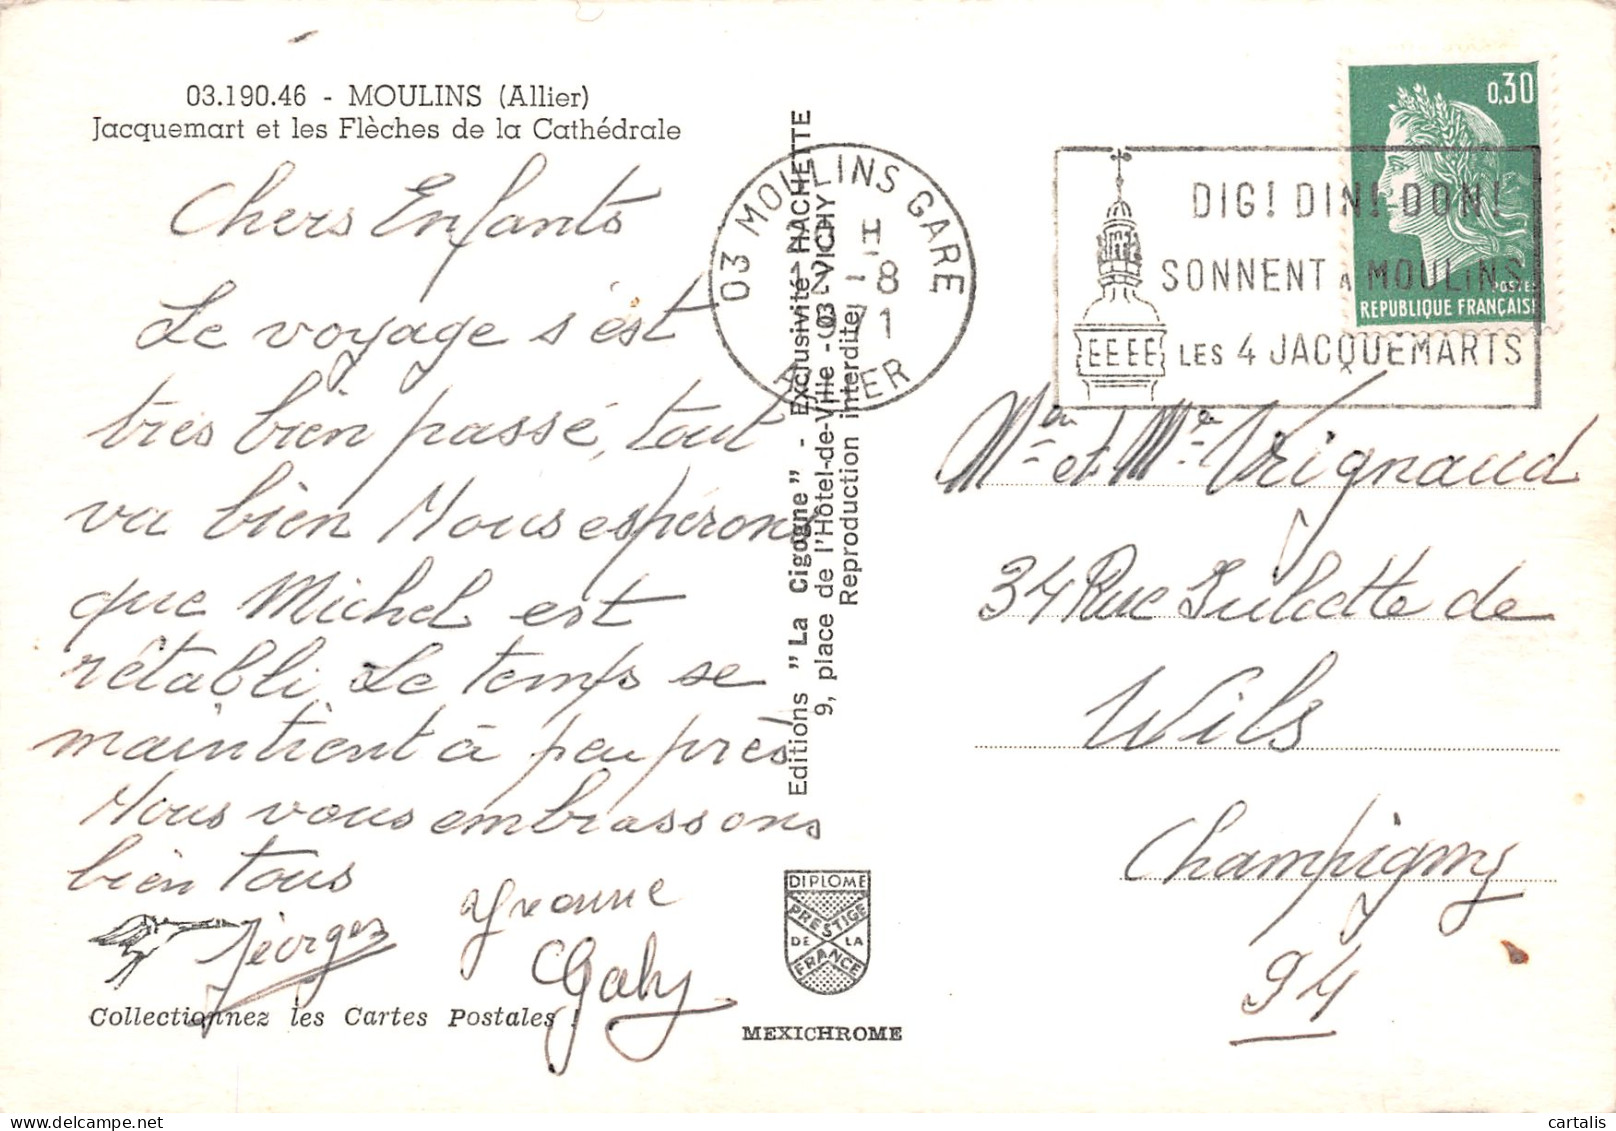 03.190.46 - MOULINS (Allier)
Jacquemart et les Flèches de la Cathédrale
Chers Enfants
Le voyage s'est
très bien passé, tout
va bien Nous espérons
que Michel est
rétabli Le temps se
maintient à peu près
Nous vous embrassons
bien tous
Géorges Yvonne
Gaby
Collectionnez les Cartes Postales !
Editions "La Cigogne" - Exclusivité HACHETTE
9, place de l'Hôtel-de-Ville - 03 - VICHY
Reproduction interdite
DIPLOME
PRESTIGE
DE LA
FRANCE
MEXICHROME
03 MOULINS GARE
H
12 -8
1971
ALLIER
DIG! DIN! DON!
SONNENT A MOULINS
LES 4 JACQUEMARTS
0,30
POSTES
REPUBLIQUE FRANÇAISE
et Vrignaud
34 Rue Juliette de
Wils
Champigny
94
cartalis